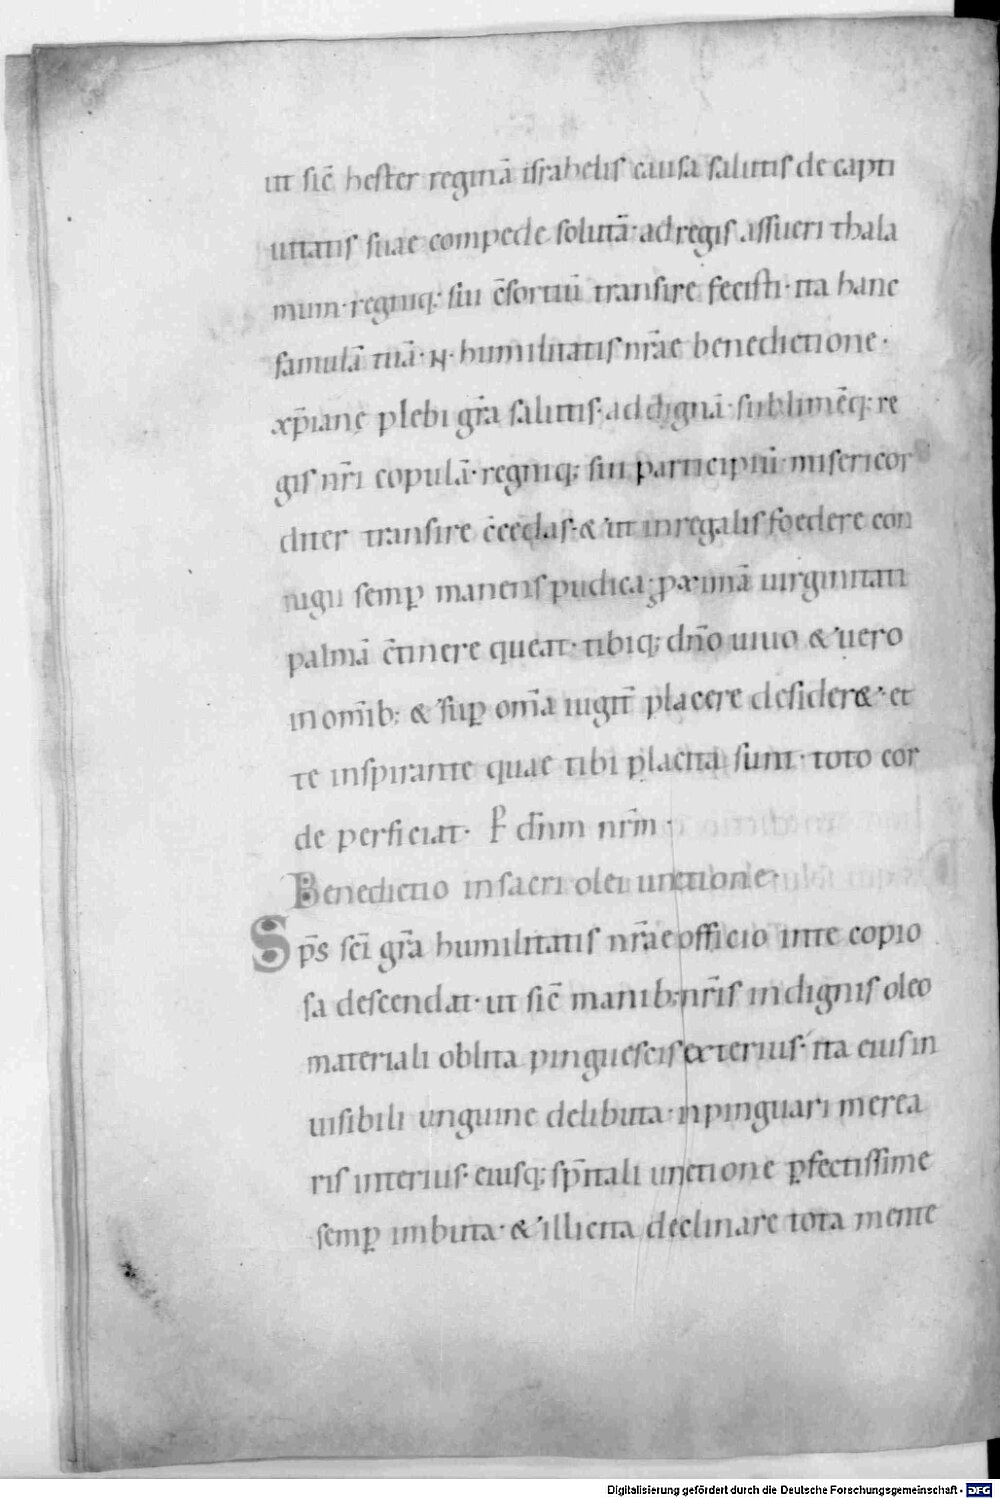 ut sic̄ hester reginā israhelis causa salutis de capti
uitatis suae compede solutā· ad regis assueri thala
mum· regniq; sui c̄sortiū transire fecisti· ita hanc
famulā tuā· N· humilitatis nr̄ae benedictione·
xp̄ianę plebi gr̄a salutis· ad dignā· sublimēq; re
gis nr̄i copulā· regniq; sui participiū· misericor
diter transire c̄cedas· & ut in regalis foedere con
iugii semp̱ manens pudica· proximā uirginitati
palmā c̄tinere queat· tibiq; dn̄o uiuo & uero
in omīb; & sup̱ om̄ia iugit̄ placere desideret· et
te inspirante quae tibi placita sunt· toto cor
de perficiat· P̱ dn̄m nr̄m·
Benedictio in sacri olei unctione·
Sp̄s sc̄i gr̄a humilitatis nr̄ae officio in te copio
sa descendat· ut sic̄ manib; nr̄is indignis oleo
materiali oblita pinguescis exterius· ita eius in
uisibili unguine delibuta· inpinguari merea
ris interius· eiusq; sp̄itali unctione p̱fectissime
semp̱ imbuta· & illicita declinare tota mente
Digitalisierung gefördert durch die Deutsche Forschungsgemeinschaft - DFG